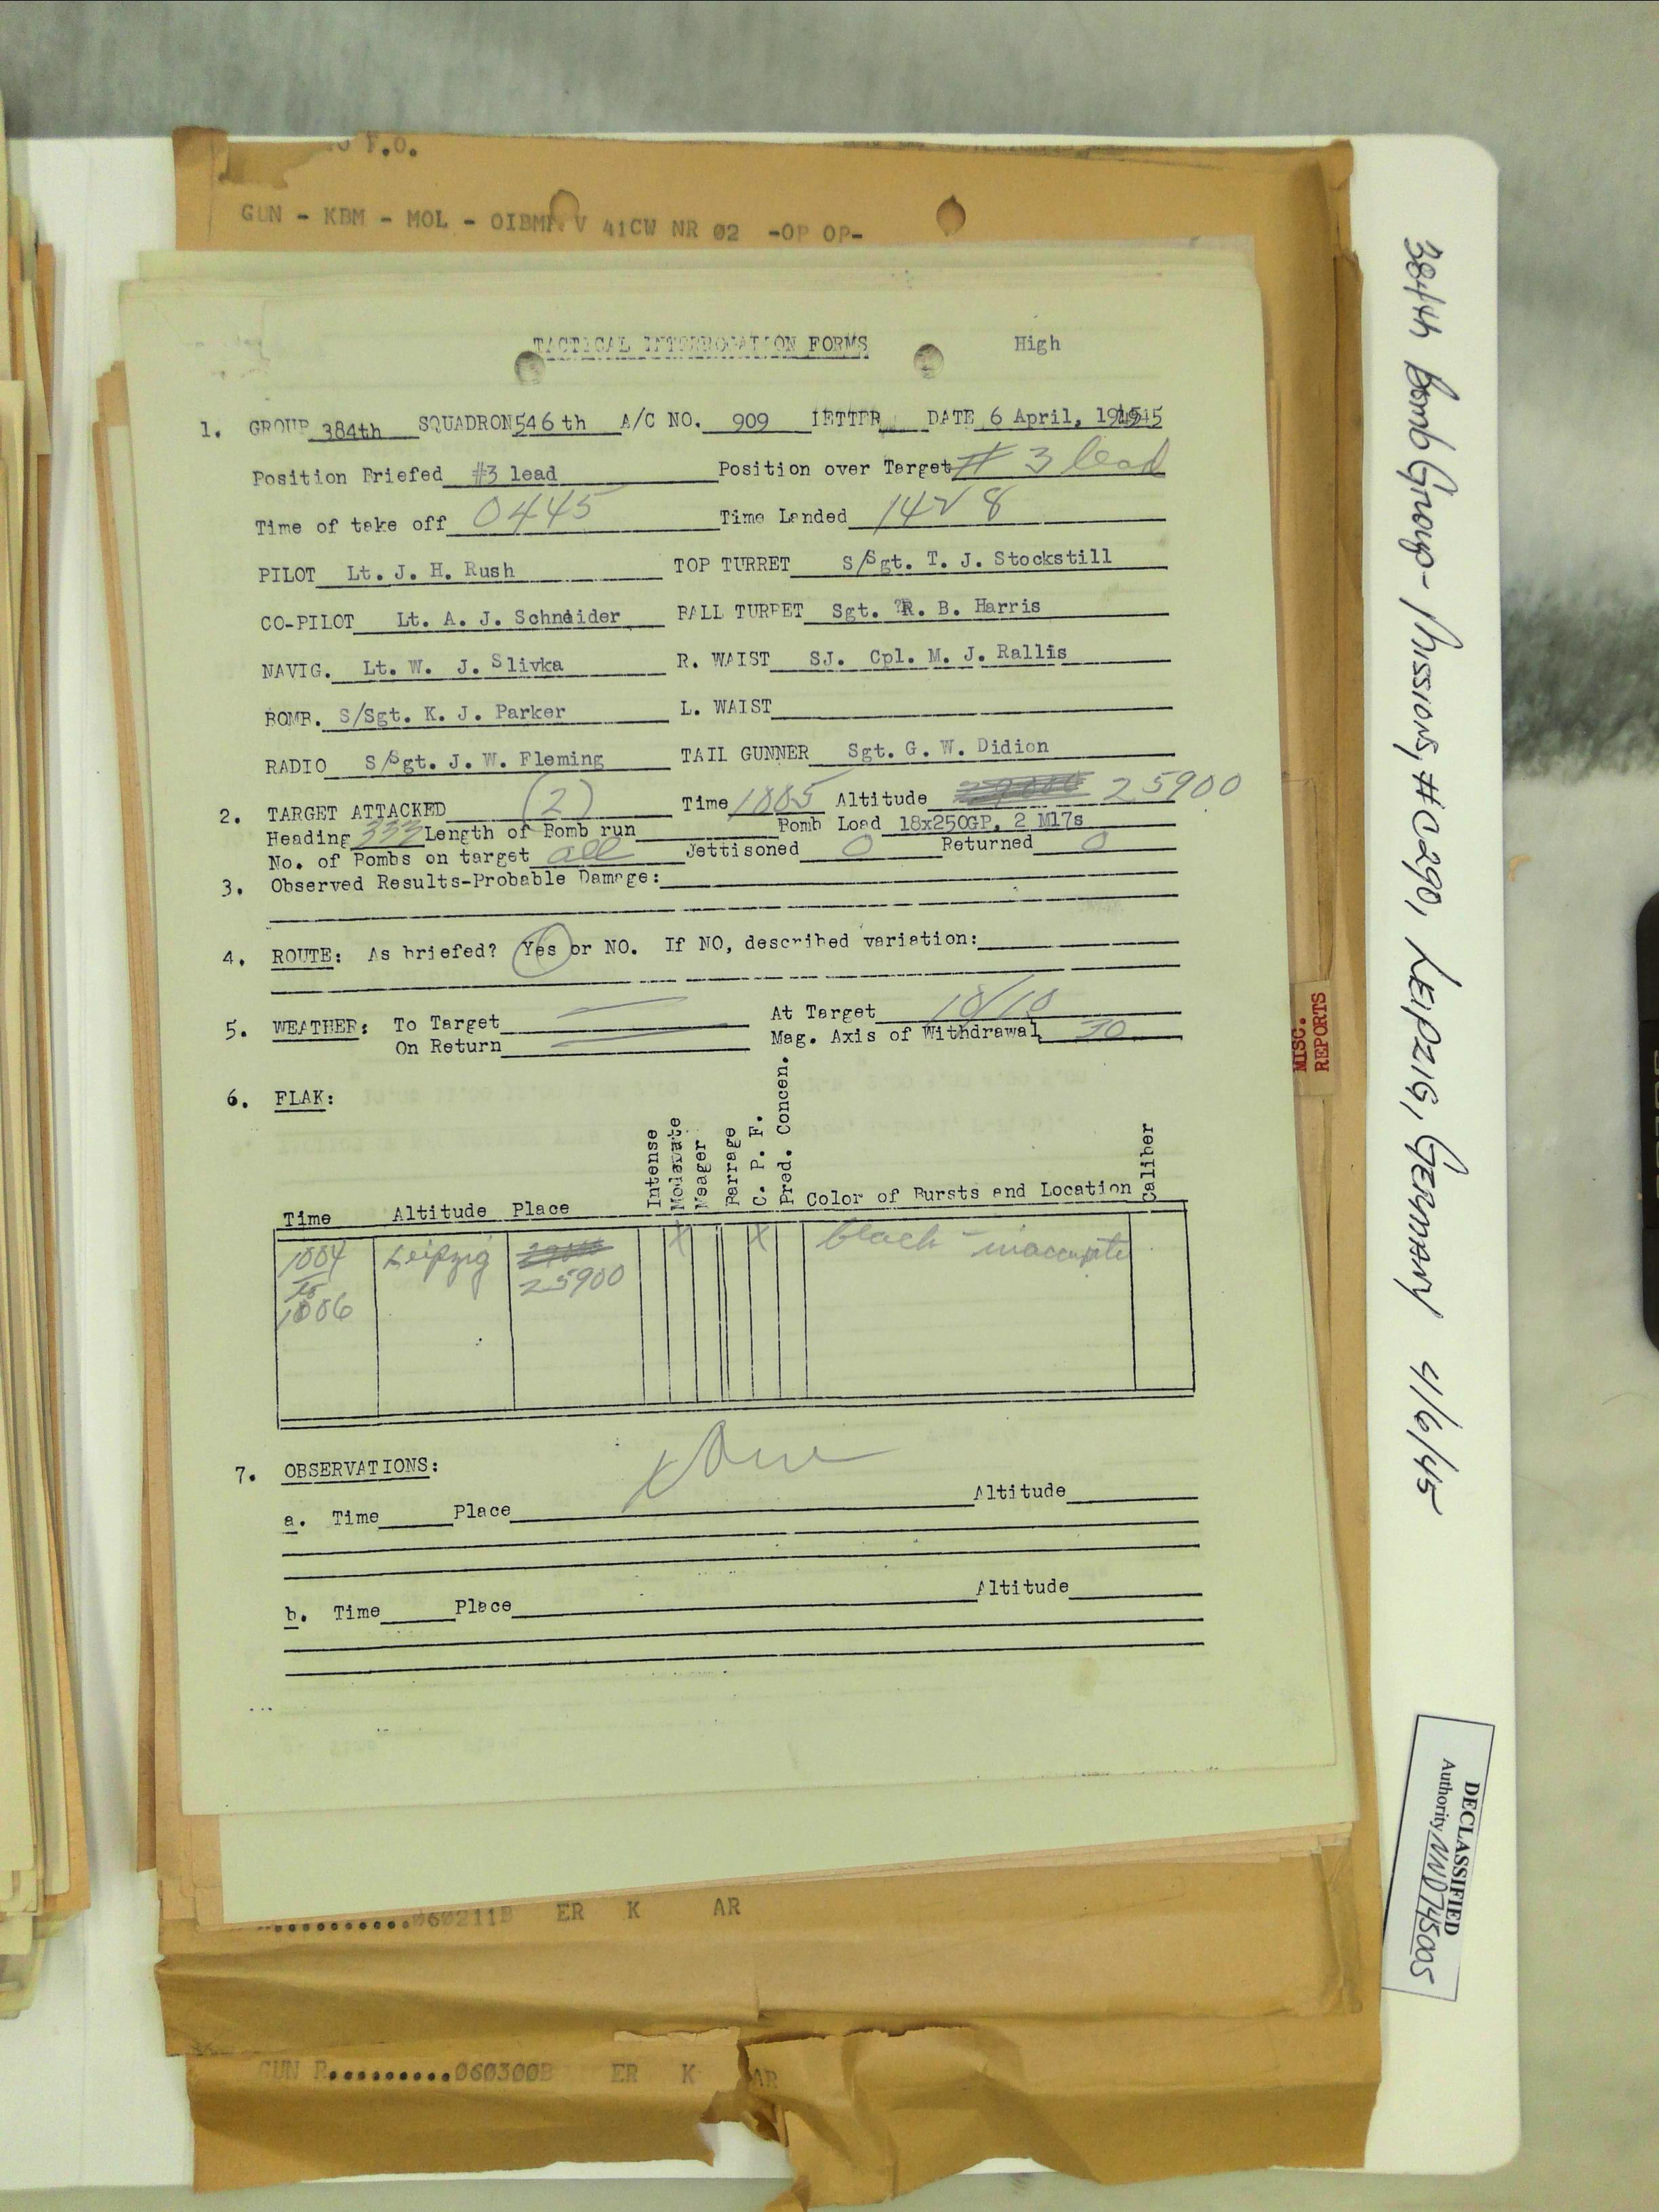 F.O.
GUN - KBM - MOL - OIBMP V 41CW NR 02 -OP OP-
TACTICAL INTERROGATION FORMS High
1. GROUP 384th SQUADRON 546 th A/C NO. 909 LETTER DATE 6 April, 1945
Position Briefed #3 lead Position over Target # 3 lead
Time of take off 0445 Time Landed 1428
PILOT Lt. J. H. Rush TOP TURRET S/Sgt. T. J. Stockstill
CO-PILOT Lt. A. J. Schneider BALL TURRET Sgt. R. B. Harris
NAVIG. Lt. W. J. Slivka R. WAIST SJ. Cpl. M. J. Rallis
BOMB. S/Sgt. K. J. Parker L. WAIST
RADIO S/Sgt. J. W. Fleming TAIL GUNNER Sgt. G. W. Didion
2. TARGET ATTACKED (2) Time 1005 Altitude 25900
Heading 333 Length of Bomb run Bomb Load 18x250GP, 2 M17s
No. of Bombs on target all Jettisoned 0 Returned 0
3. Observed Results-Probable Damage:
4. ROUTE: As briefed? Yes or NO. If NO, described variation:
5. WEATHER: To Target At Target 10/10
On Return Mag. Axis of Withdrawal 30
6. FLAK:
Time Altitude Place Intense Moderate Meager Barrage C. P. F. Pred. Concen. Color of Bursts and Location Caliber
1004 Leipzig X X black - inaccurate
to 25900
1006
7. OBSERVATIONS: None
a. Time Place Altitude
b. Time Place Altitude
060211B ER K AR
GUN R..........060300B ER K AR
MISC.
REPORTS
384th Bomb Group - Missions, #C290, LEIPZIG, GERMANY 4/6/45
DECLASSIFIED
Authority NND745005